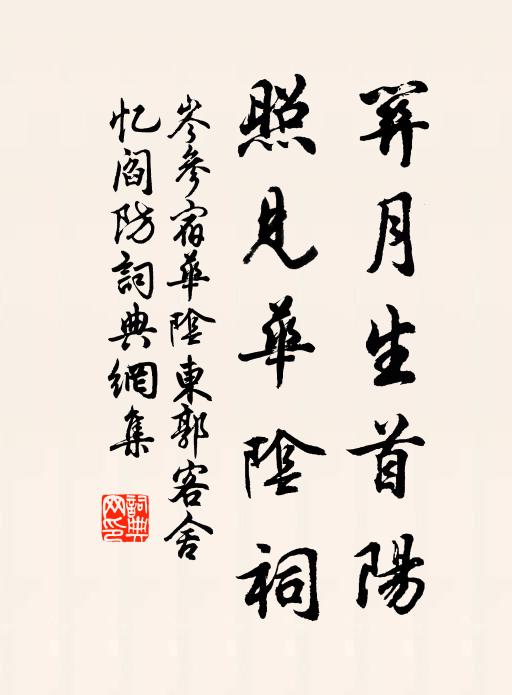 關月生首陽
照見華陰祠
岑參宿華陰東郭客舍
忆閻防詞典網集
詞典网印